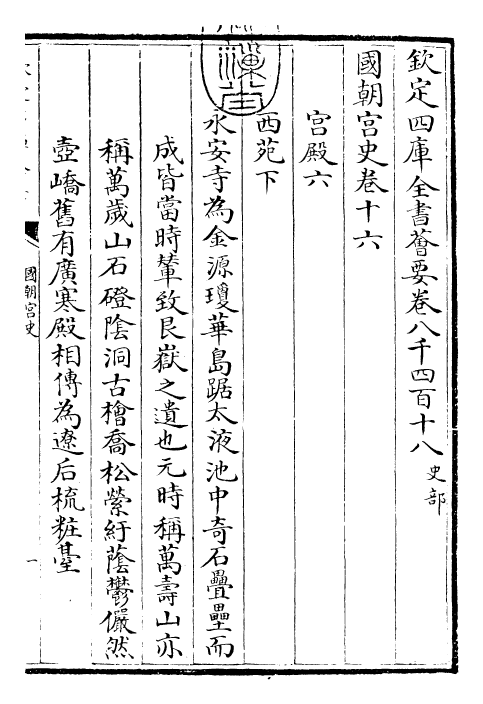 欽定四庫全書薈要卷八千四百十八史部
國朝宮史卷十六
宮殿六
西苑下
永安寺為金源瓊華島踞太液池中奇石疊壘而
成皆當時輦致艮嶽之遺也元時稱萬壽山亦
稱萬歲山石磴陰洞古檜喬松縈紆蔭鬱儼然
壺嶠舊有廣寒殿相傳為遼后梳粧臺
國朝宮史
一